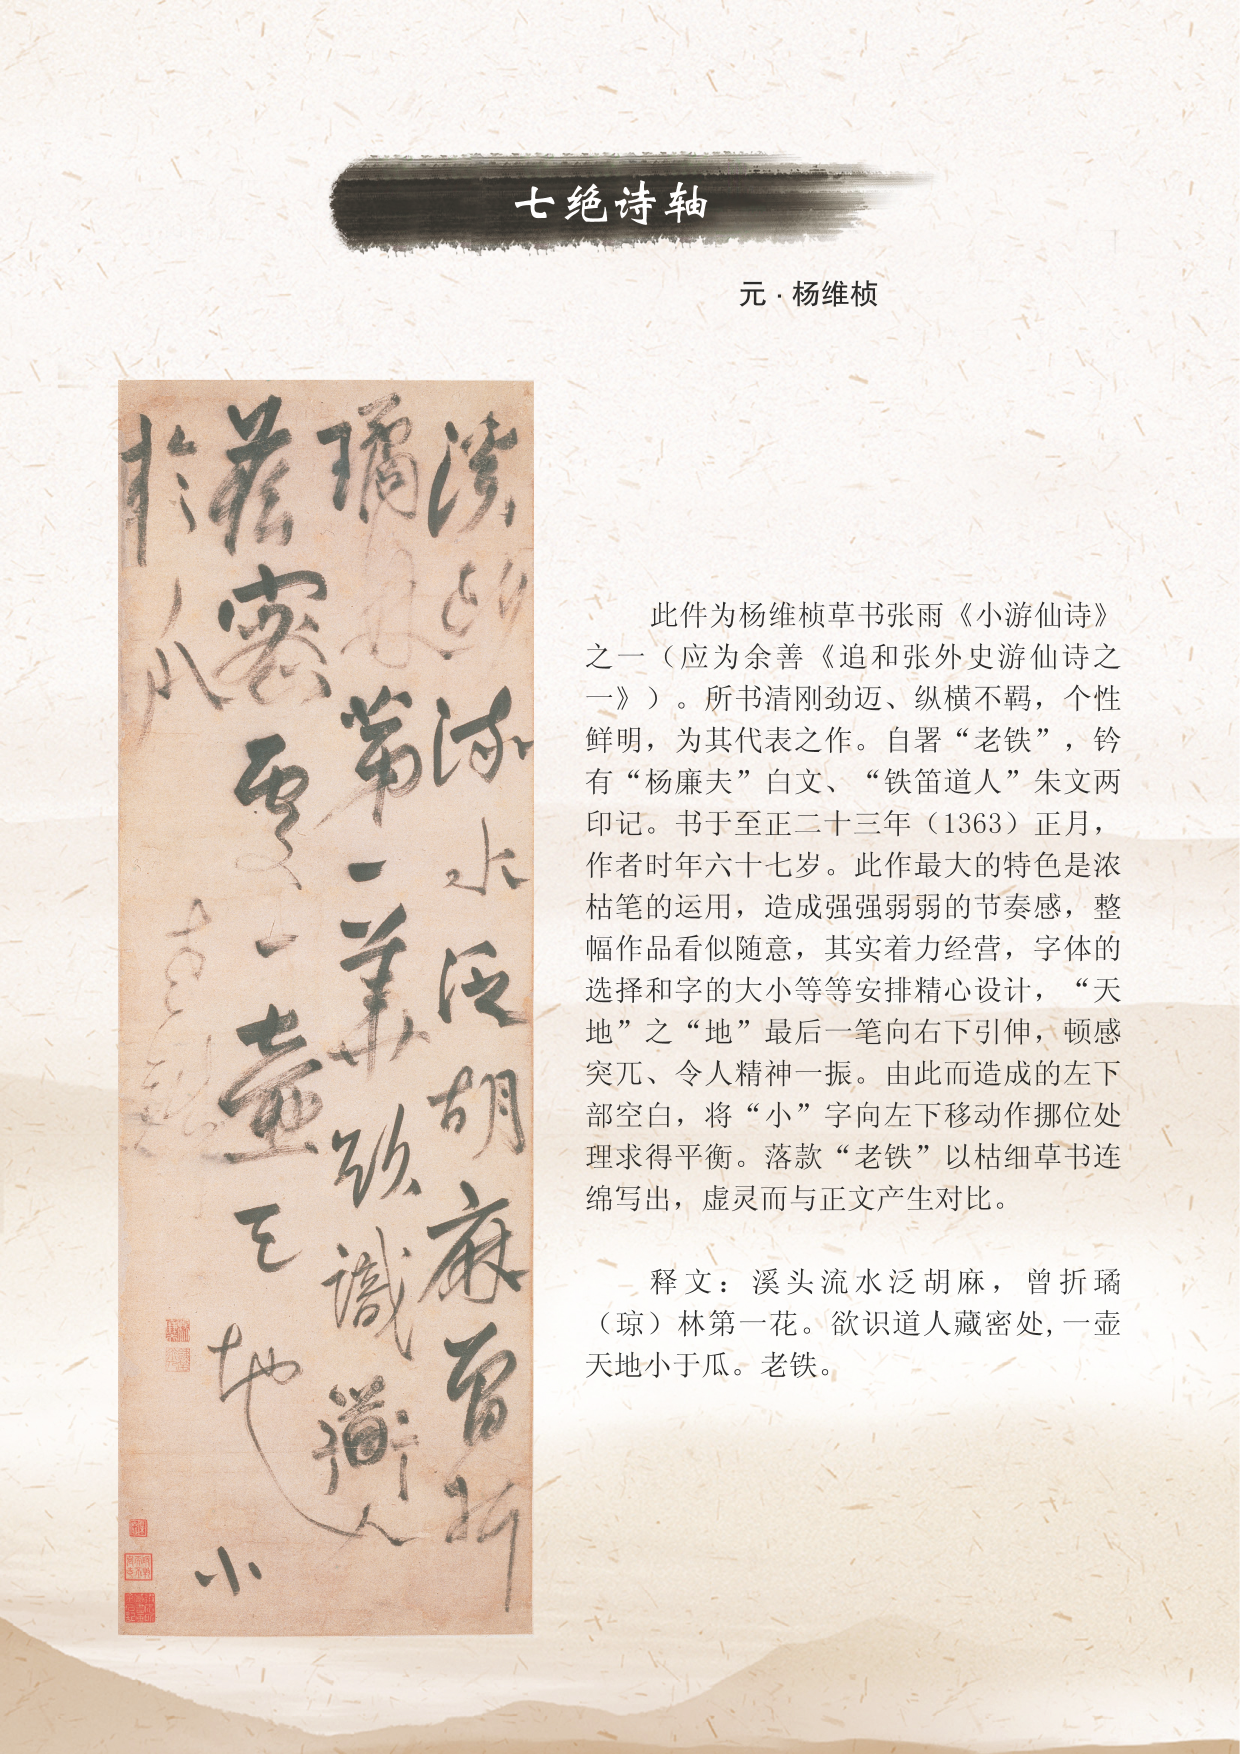 七绝诗轴
元·杨维桢
溪头流水泛胡麻曾折
璚林第一華欲識道人
藏密處一壺天地小
於瓜
老鐵
此件为杨维桢草书张雨《小游仙诗》
之一（应为余善《追和张外史游仙诗之
一》）。所书清刚劲迈、纵横不羁，个性
鲜明，为其代表之作。自署“老铁”，钤
有“杨廉夫”白文、“铁笛道人”朱文两
印记。书于至正二十三年（1363）正月，
作者时年六十七岁。此作最大的特色是浓
枯笔的运用，造成强强弱弱的节奏感，整
幅作品看似随意，其实着力经营，字体的
选择和字的大小等等安排精心设计，“天
地”之“地”最后一笔向右下引伸，顿感
突兀、令人精神一振。由此而造成的左下
部空白，将“小”字向左下移动作挪位处
理求得平衡。落款“老铁”以枯细草书连
绵写出，虚灵而与正文产生对比。
释文：溪头流水泛胡麻，曾折璚
（琼）林第一花。欲识道人藏密处,一壶
天地小于瓜。老铁。